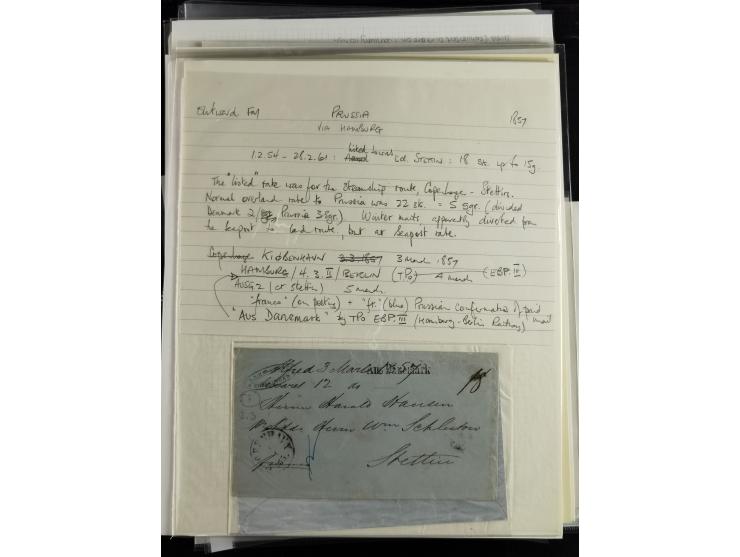 PRUSSIA
1857
VIA HAMBURG
listed
1.2.54 - 28.2.61 : STETTIN : 18 sk. up to 15g.
The "listed" rate was for the steamship route, Copenhagen - Stettin.
Normal overland rate to Prussia was 22 sk. = 5 sgr. (divided
Denmark 2 / Prussia 3 sgr). Winter mails apparently diverted from
the seaport to land route, but at seaport rate.
Copenhagen KIØBENHAVN 3.3.1857 3 march 1857
HAMBURG / 4.3. II / BERLIN (TPO) 4 march (EBP. III)
AUSG. 2 (at Stettin) 5 march
"franco" (on posting) + "fr." (blue) Prussian confirmation of paid
"Aus Danemark" by TPO EBP. III (Hamburg-Berlin Railway) mail
Aus Danemark
18
12
Herrn Harald Hansen
Herrn Wm Schlutow
Stettin